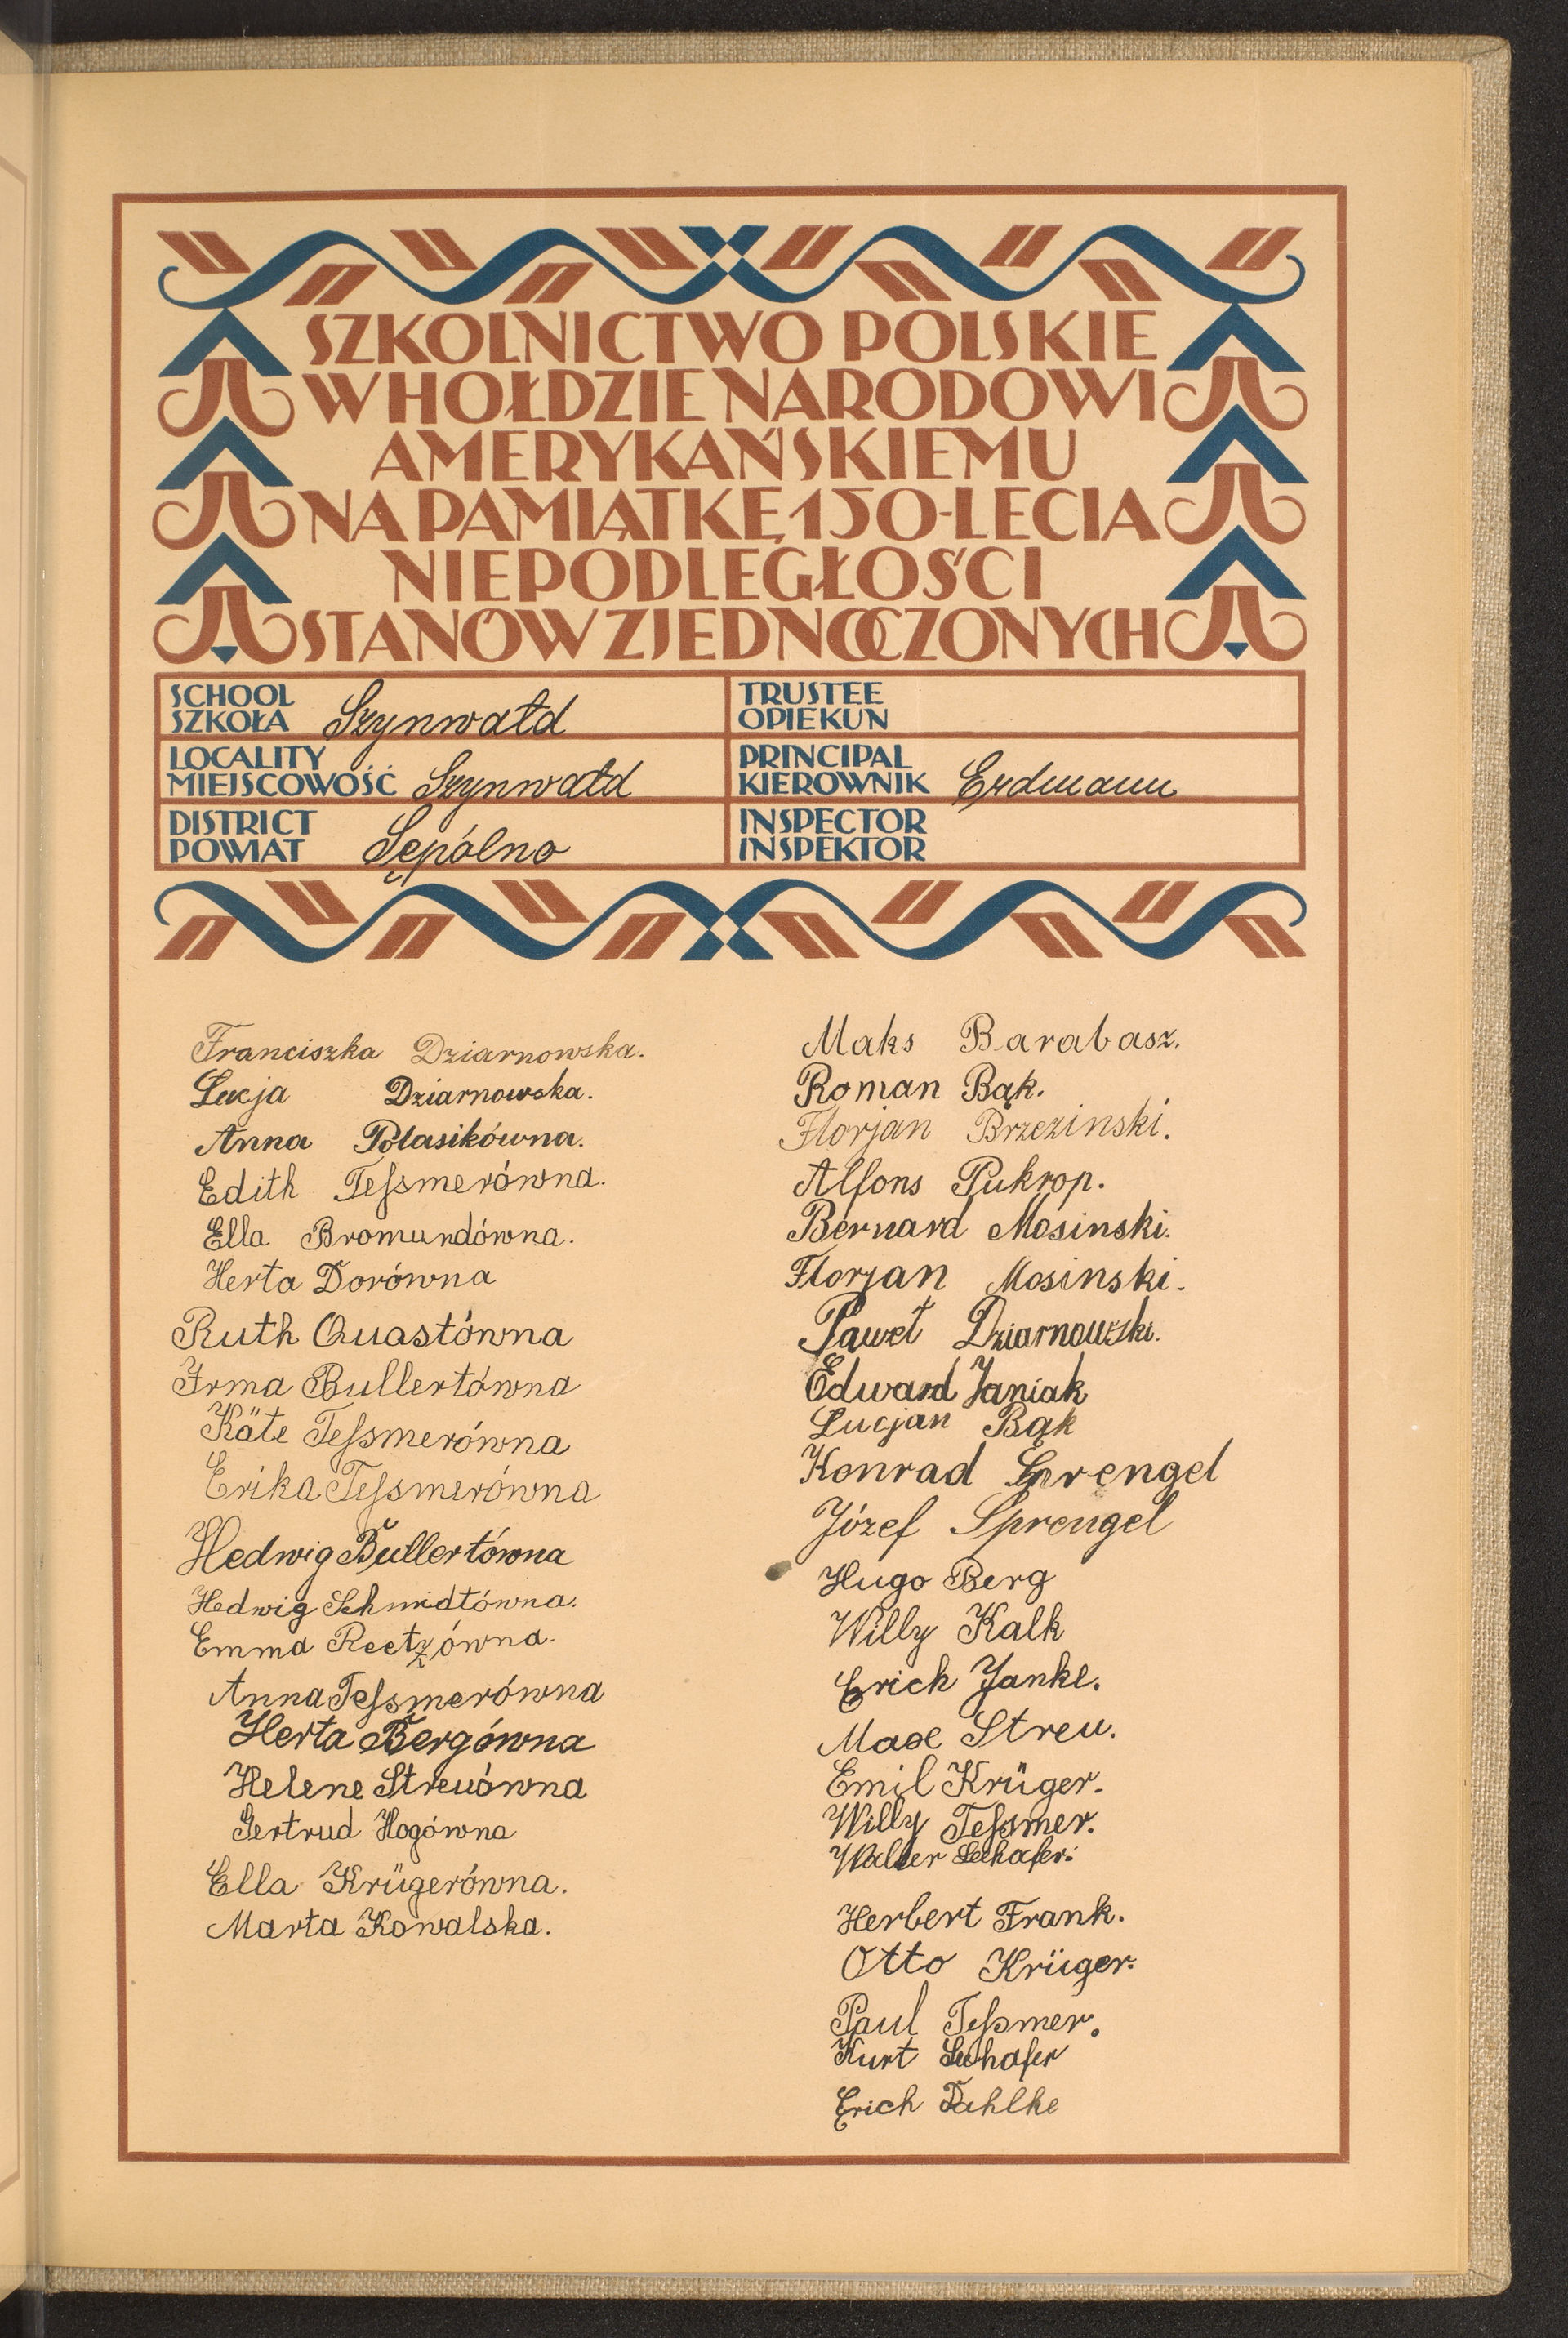 SZKOLNICTWO POLSKIE
W HOŁDZIE NARODOWI
AMERYKAŃSKIEMU
NA PAMIĄTKĘ 150-LECIA
NIEPODLEGŁOŚCI
STANÓW ZJEDNOCZONYCH
SCHOOL
SZKOŁA Szynwałd
LOCALITY
MIEJSCOWOŚĆ Szynwałd
DISTRICT
POWIAT Sępólno
TRUSTEE
OPIEKUN
PRINCIPAL
KIEROWNIK Erdmann
INSPECTOR
INSPEKTOR
Franciszka Dziarnowska.
Lucja Dziarnowska.
Anna Polasikówna.
Edith Teſsmerówna.
Ella Bromundówna.
Herta Dorówna
Ruth Quastówna
Irma Bullertówna
Käte Teſsmerówna
Erika Teſsmerówna
Hedwig Bullertówna
Hedwig Schmidtówna.
Emma Reetzówna.
Anna Teſsmerówna
Herta Bergówna
Helene Streuówna
Gertrud Hogówna
Ella Krügerówna.
Marta Kowalska.
Maks Barabasz.
Roman Bąk.
Florjan Brzezinski.
Alfons Pukrop.
Bernard Mosinski.
Florjan Mosinski.
Paweł Dziarnowski.
Edward Janiak
Lucjan Bąk
Konrad Sprengel
Józef Sprengel
Hugo Berg
Willy Kalk
Erich Janke.
Max Streu.
Emil Krüger.
Willy Teſsmer.
Walter
Herbert Frank.
Otto Krüger.
Paul Teſsmer.
Kurt
Erich Dahlke